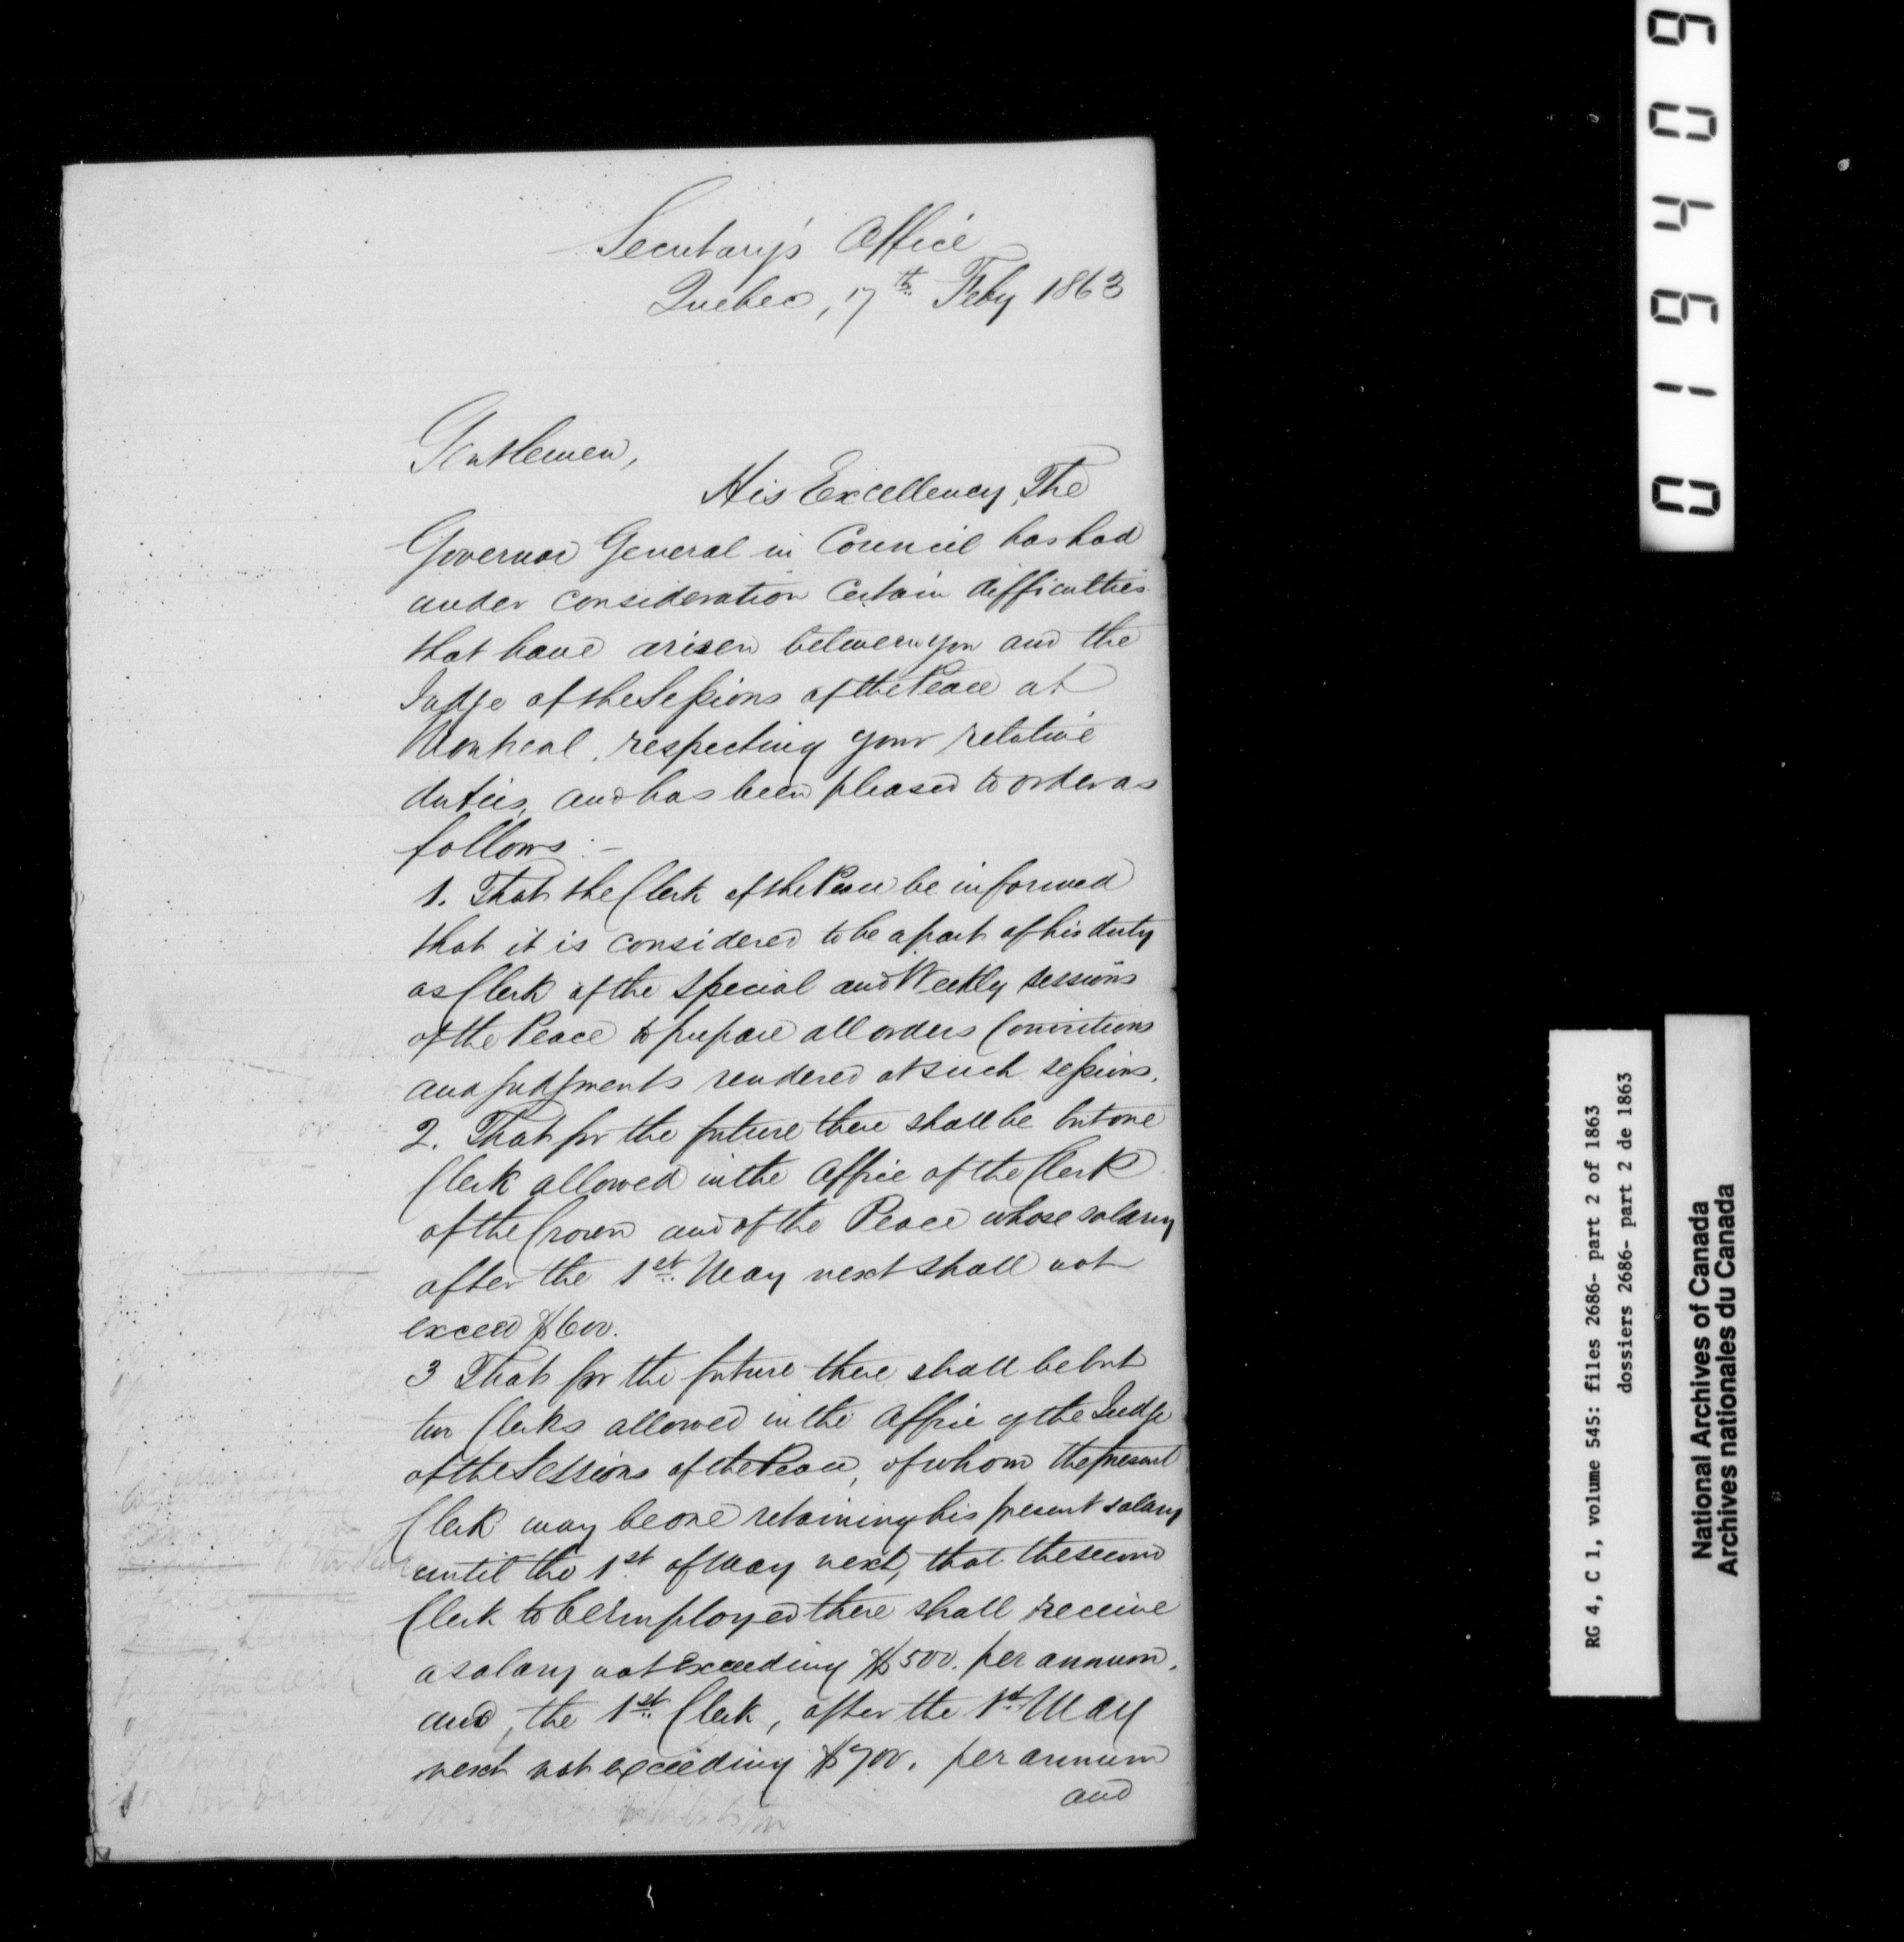 Secretary's Office
Quebec, 17th Feby 1863
Gentlemen,
His Excellency, The
Governor General in Council has had
under consideration certain difficulties
that have arisen between you and the
Judge of the Sessions of the Peace at
Montreal, respecting your relative
duties, and has been pleased to order as
follows :-
1. That the Clerk of the Peace be informed
that it is considered to be a part of his duty
as Clerk of the Special and Weekly sessions
of the Peace to prepare all orders Convictions
and judgments rendered at such sessions.
2. That for the future there shall be but one
Clerk allowed in the Office of the Clerk
of the Crown and of the Peace whose salary
after the 1st. May next shall not
exceed $600.
3 That for the future there shall be but
two Clerks allowed in the Office of the Judge
of the Sessions of the Peace, of whom the present
Clerk may be one retaining his present salary
until the 1st of May next, that the second
Clerk to be employed there shall receive
a salary not exceeding $500. per annum,
and, the 1st. Clerk, after the 1st. May
next not exceeding $700. per annum
and
019409
RG 4, C 1, volume 545: files 2686- part 2 of 1863
dossiers 2686- part 2 de 1863
National Archives of Canada
Archives nationales du Canada